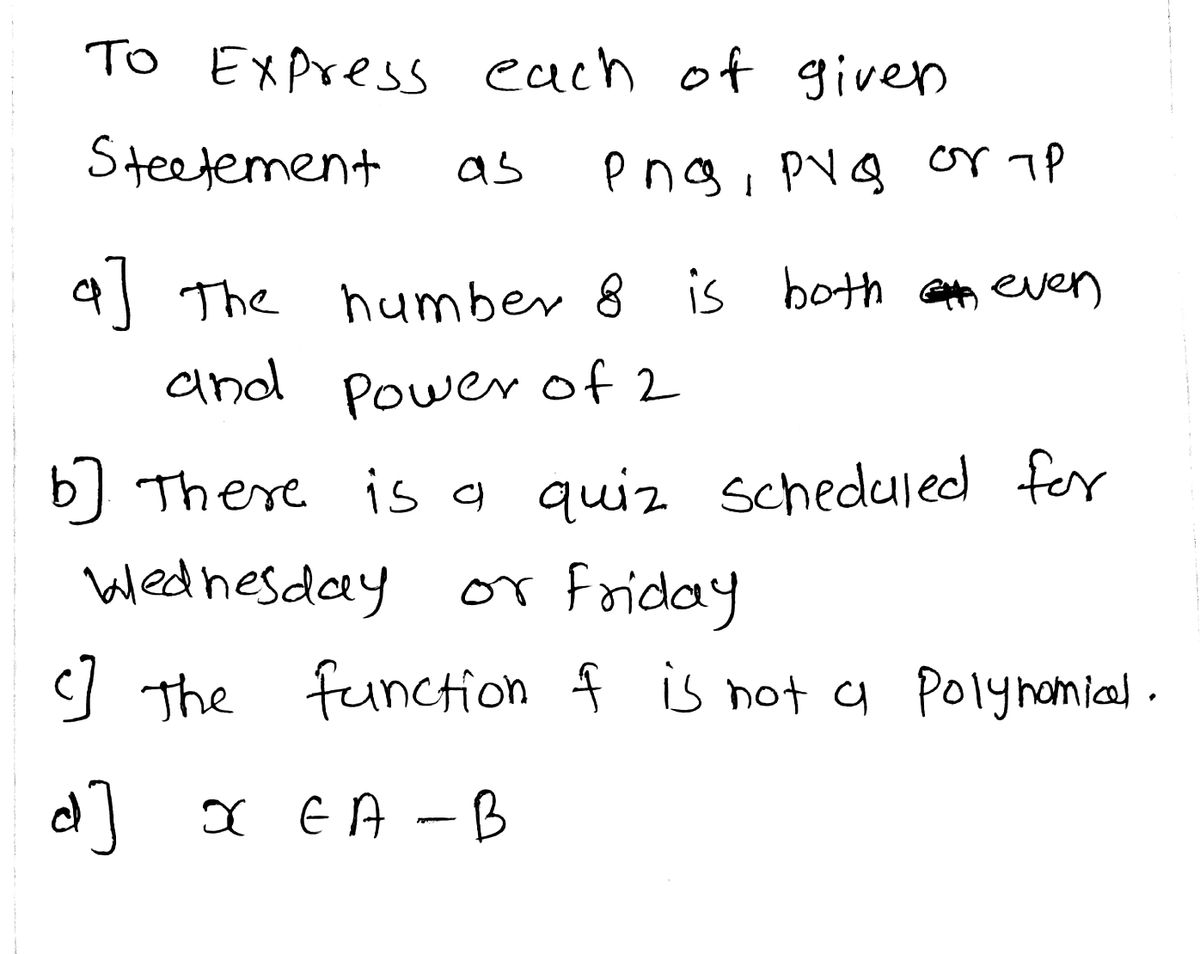 To Express each of given
Steetement as P∩Q, P∨Q or ¬P
a] The number 8 is both even
and Power of 2
b] There is a quiz scheduled for
Wednesday or Friday
c] The function f is not a Polynomial.
d] x ∈ A - B